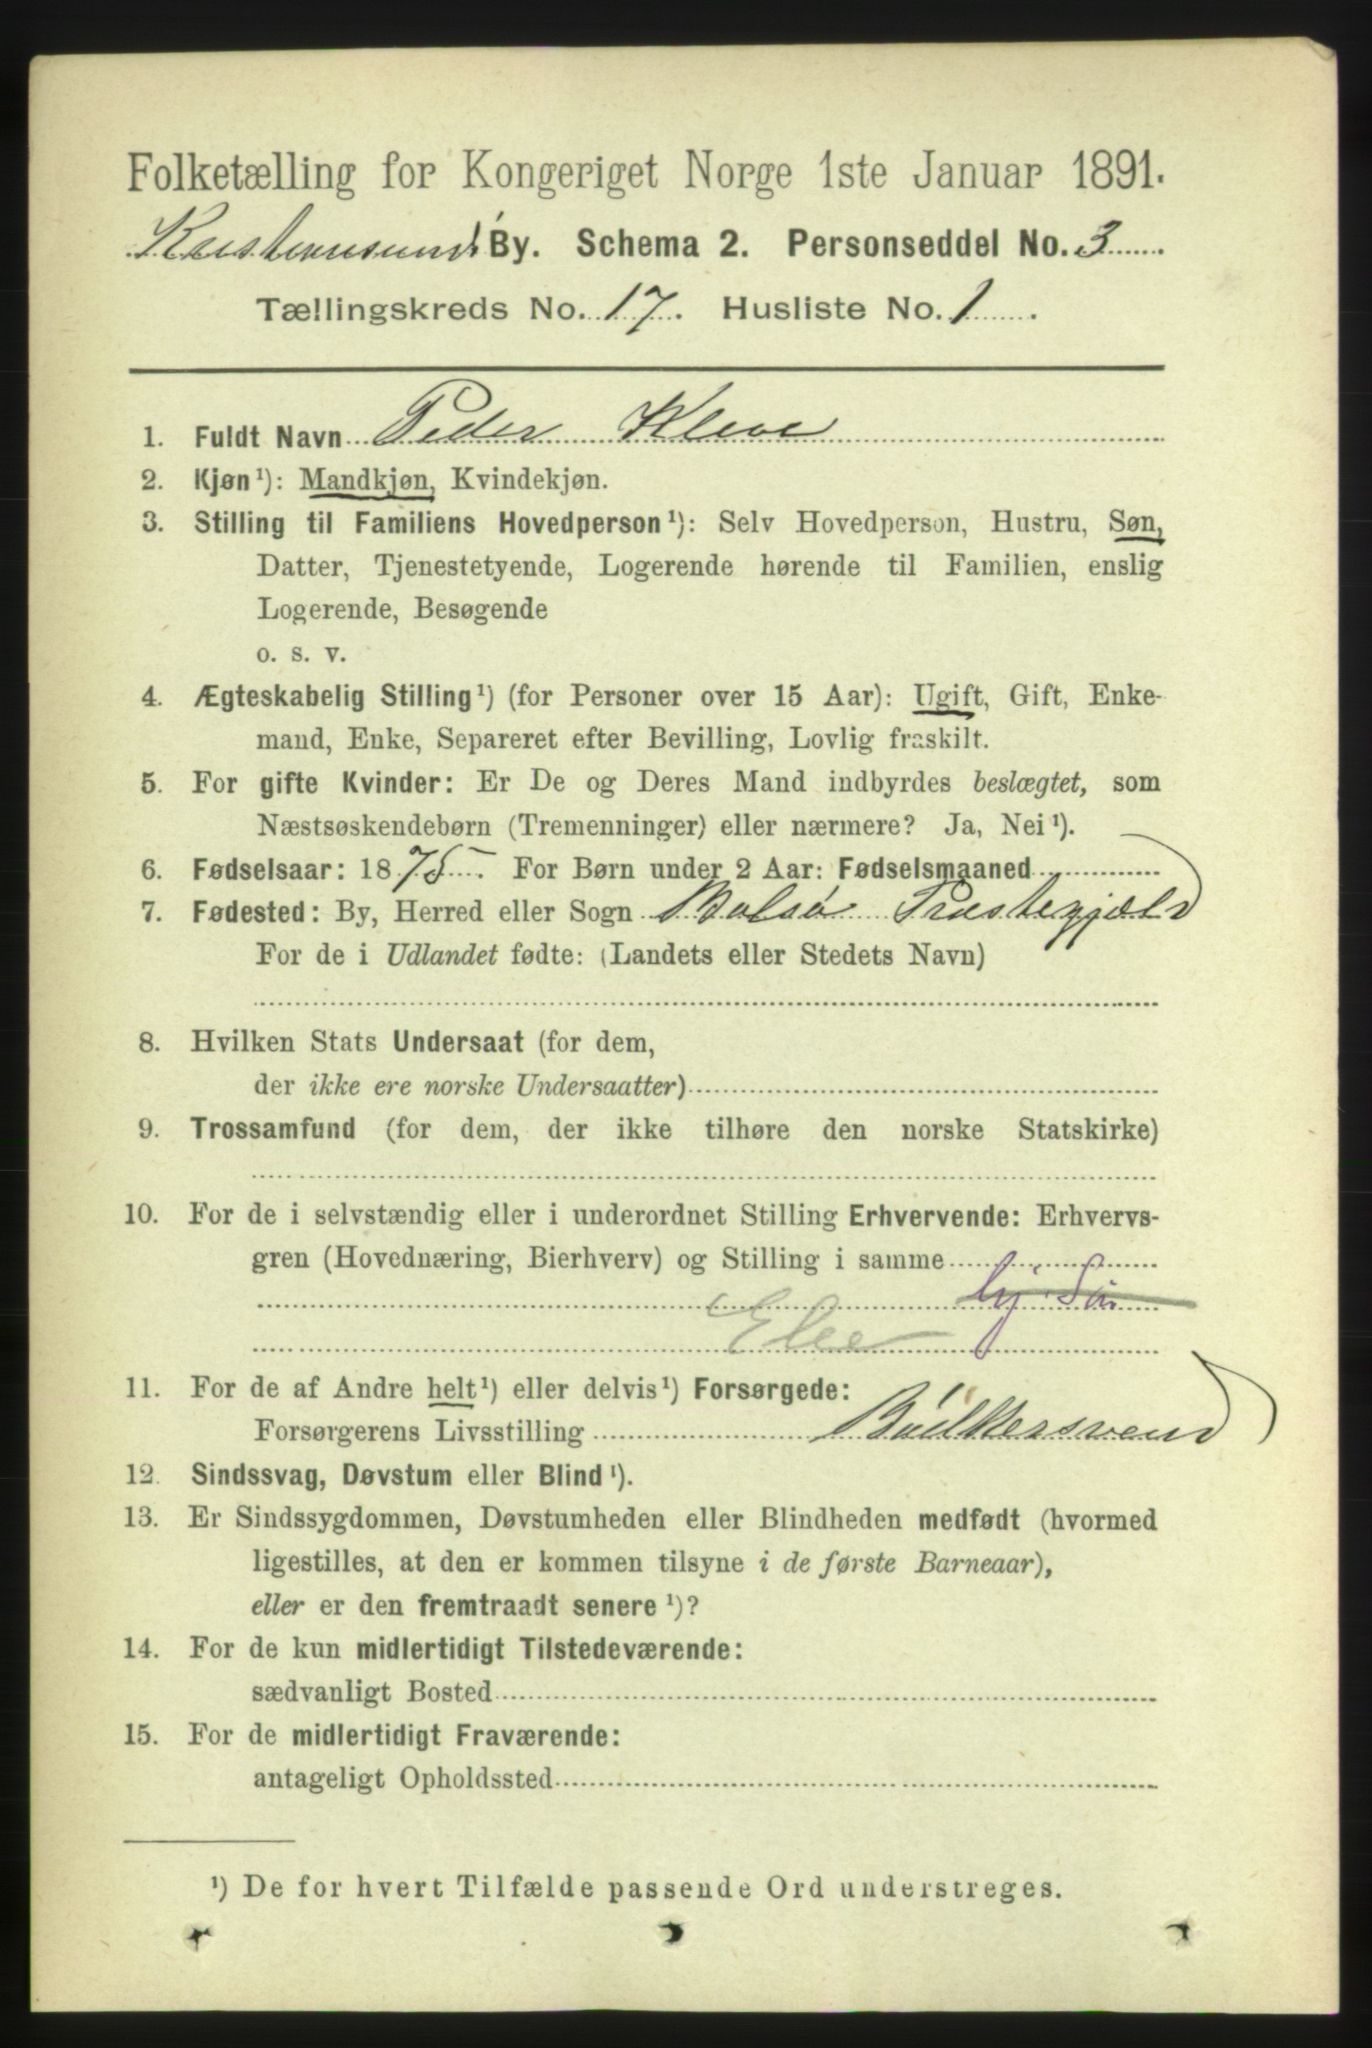 Folketælling for Kongeriget Norge 1ste Januar 1891.
Kristiansund By. Schema 2. Personseddel No. 3
Tællingskreds No. 17. Husliste No. 1.
1. Fuldt Navn Peder Kleve
2. Kjøn¹): Mandkjøn, Kvindekjøn.
3. Stilling til Familiens Hovedperson¹): Selv Hovedperson, Hustru, Søn,
Datter, Tjenestetyende, Logerende hørende til Familien, enslig
Logerende, Besøgende
o. s. v.
4. Ægteskabelig Stilling¹) (for Personer over 15 Aar): Ugift, Gift, Enke-
mand, Enke, Separeret efter Bevilling, Lovlig fraskilt.
5. For gifte Kvinder: Er De og Deres Mand indbyrdes beslægtet, som
Næstsøskendebørn (Tremenninger) eller nærmere? Ja, Nei¹).
6. Fødselsaar: 1875. For Børn under 2 Aar: Fødselsmaaned
7. Fødested: By, Herred eller Sogn Bolsø Præstegjæld
For de i Udlandet fødte: (Landets eller Stedets Navn)
8. Hvilken Stats Undersaat (for dem,
der ikke ere norske Undersaatter)
9. Trossamfund (for dem, der ikke tilhøre den norske Statskirke)
10. For de i selvstændig eller i underordnet Stilling Erhvervende: Erhvervs-
gren (Hovednæring, Bierhverv) og Stilling i samme
11. For de af Andre helt¹) eller delvis¹) Forsørgede:
Forsørgerens Livsstilling Bødkersvend
12. Sindssvag, Døvstum eller Blind¹).
13. Er Sindssygdommen, Døvstumheden eller Blindheden medfødt (hvormed
ligestilles, at den er kommen tilsyne i de første Barneaar),
eller er den fremtraadt senere¹)?
14. For de kun midlertidigt Tilstedeværende:
sædvanligt Bosted
15. For de midlertidigt Fraværende:
antageligt Opholdssted
¹) De for hvert Tilfælde passende Ord understreges.